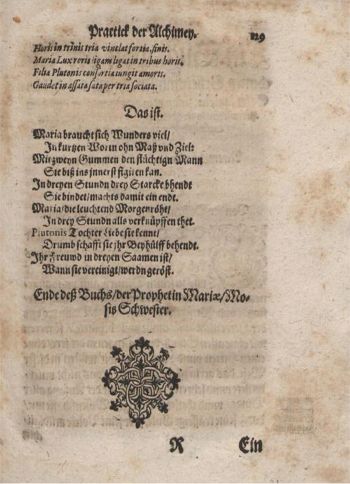 Practick der Alchimey. 129
Horis in trinis tria vinclat fortia finis.
Maria Lux roris ligam ligat in tribus horis.
Filia Plutonis consortia iungit amoris.
Gaudet in assata sata per tria sociata.
Das ist.
Maria braucht sich Wunders viel/
In kurtzen Worten ohn Maß vnd Ziel:
Mit zween Gummen den flüchtign Mann
Sie biß ins innerst figiren kan.
In dreyen Stundn drey Starcke bhendt
Sie bindet/machts damit ein endt.
Maria/die leuchtend Morgenröht/
In drey Stundn alls verknüpffen thet.
Plutonis Tochter Liebe sie kennt/
Drumb schafft sie jhr Beyhülff behendt.
Ihr Frewnd in dreyen Saamen ist/
Wann sie vereinigt/werdn geröst.
Ende deß Buchs/der Prophetin Mariæ/Mo-
sis Schwester.
R Ein